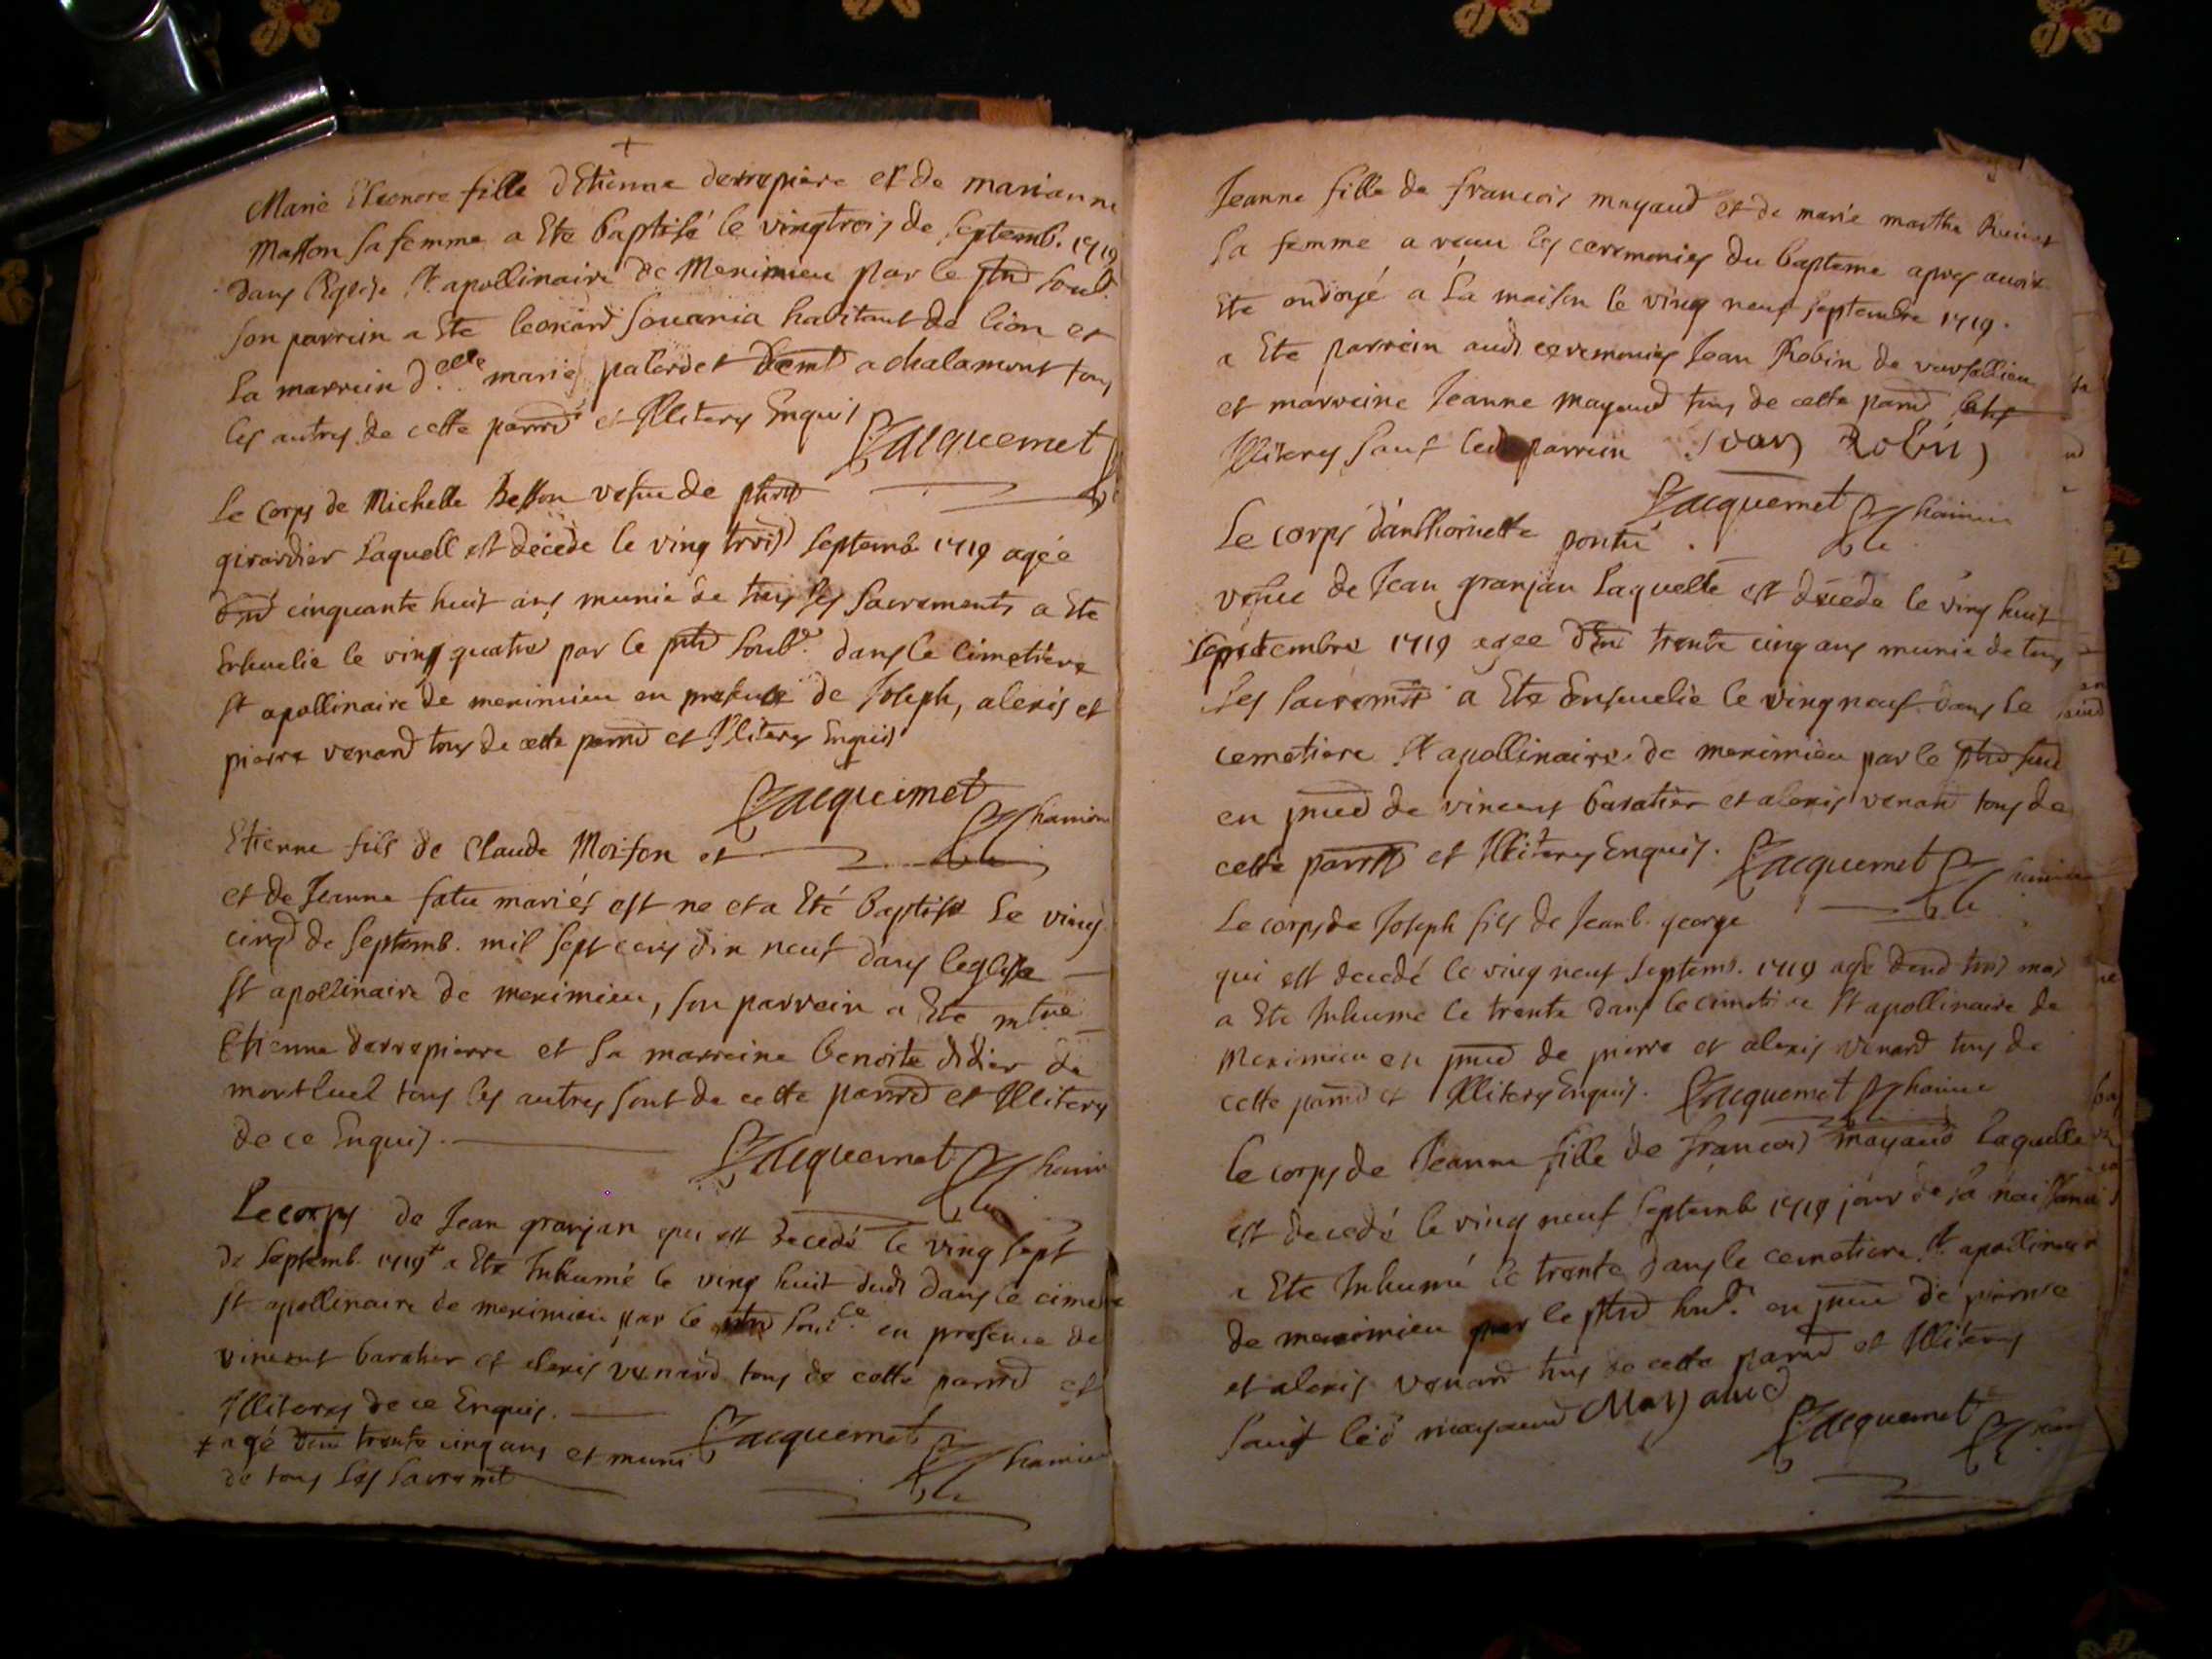 Marie Eleonore fille dEtienne derrepierre et de marianne
Masson sa femme a Ete baptisé le vingtrois de septemb. 1719
dans l'Eglise St apollinaire de Meximieu par le pnt soub.
son parrein a Ete leonard souvania habitant de lion et
la marrein d.elle marie palerdet demt a chalamont tous
les autres de cette parrd et Illiterez Enquis
Jacquemet
Le corps de Michelle Besson vefue de
girardier laquell est décéde le ving trois septemb 1719 agée
cinquante huit ans munie de tous les sacrements a Ete
Enseuelie le ving quatre par le pnt soub.é dans le cimetiere
St apollinaire de meximieu en presence de Joseph, alexis et
pierre venard tous de cette parrd et Illiterez Enquis
Jacquemet
Etienne fils de Claude Moison et
et de Jeanne fatu mariés est ne et a Eté baptisé le ving
cinq de septemb. mil sept cens dix neuf dans leglise
St apollinaire de meximieu, son parrein a Ete mtre
Etienne derrepierre et sa marreine benoite didier de
montluel tous les autres sont de cette parrd et Illiterez
de ce Enquis.
Jacquemet
Le corps de Jean granjan qui est decedé le ving sept
de septemb. 1719 + a Ete Inhumé le ving huit dudt dans le cimete
St apollinaire de meximieu par le pnt soub.é en presence de
vincent baratier et alexis venard tous de cette parrd et
Illiterez de ce Enquis.
Jacquemet
+ agé trente cinq ans et muni
de tous les sacremt
Jeanne fille de francois mayaud et de marie marthe
sa femme a receu les ceremonies du bapteme apres auoir
Ete ondoyé a la maison le ving neuf septembre 1719.
a Ete parrein audt ceremonies Jean Robin de versallieu
et marreine Jeanne mayaud tous de cette parrd
Illiterez sauf led parrein Jean Robin
Jacquemet
Le corps d'anthoinette pontu
vefue de Jean granjan laquelle est décéde le ving huit
septembre 1719 agee trente cinq ans munie de tous
les sacremt a Ete Enseuelie le ving neuf dans le
cemetiere St apollinaire de meximieu par le pnt
en pnce de vincent baratier et alexis venard tous de
cette parrd et Illiterez Enquis. Jacquemet
Le corps de Joseph fils de Jean b. george
qui est decedé le ving neuf septemb. 1719 agé trois mois
a Ete Inhumé le trente dans le cimetiere St apollinaire de
Meximieu en pnce de pierre et alexis venard tous de
cette parrd et Illiterez Enquis. Jacquemet
Le corps de Jeanne fille de francois mayaud laquelle
est decedé le ving neuf septemb 1719 jour de sa naissance
a Ete Inhumé le trente dans le cemetiere St apollinair
de meximieu par le pnt soub.é en pnce de pierre
et alexis venard tous de cette parrd et Illiterez
sauf led mayaud Mayaud
Jacquemet